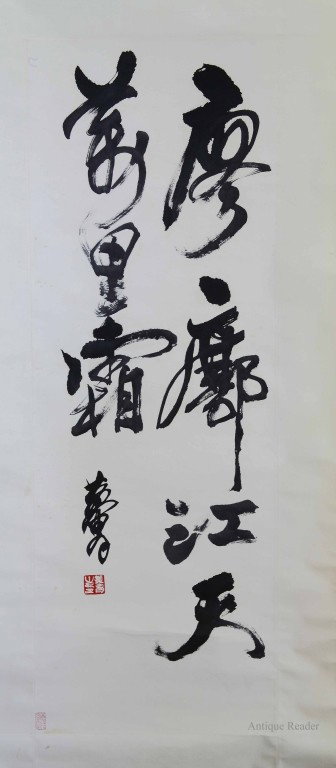 廖廓江天
萬里霜
Antique Reader